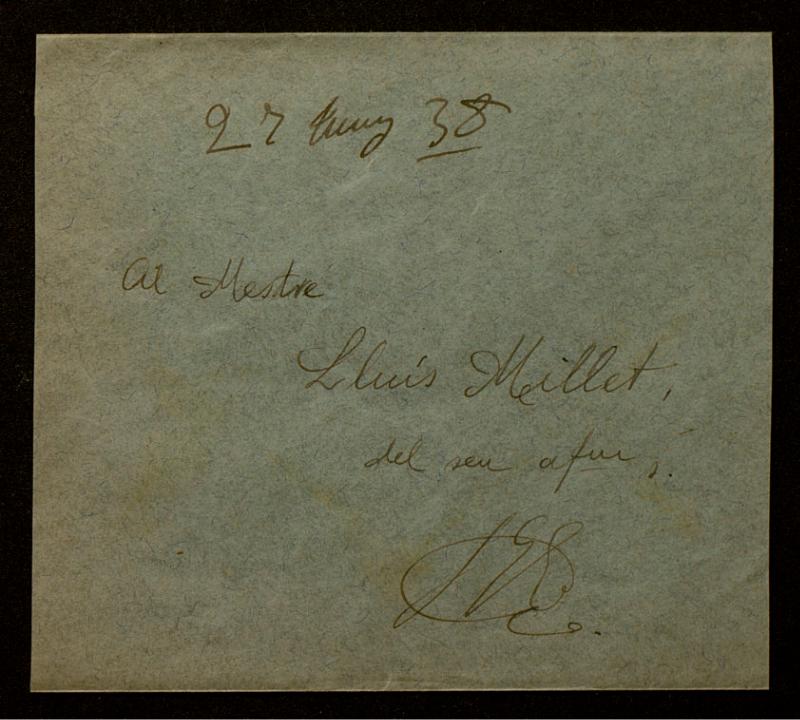 27 Juny 38
Al Mestre
Lluís Millet,
del seu afm,